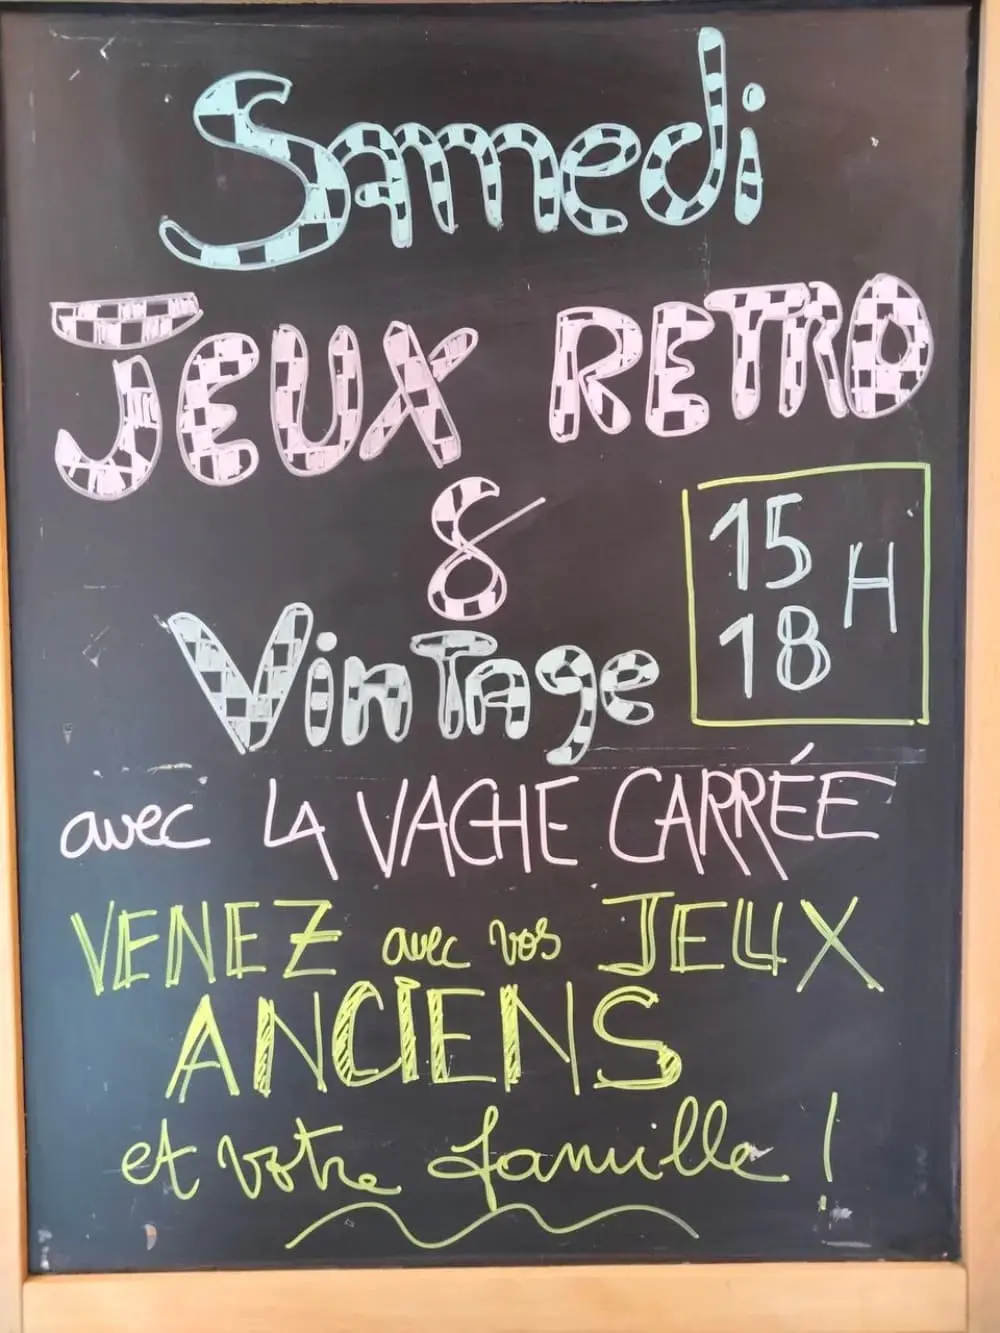 Samedi
JEUX RETRO
&
Vintage
15
18 H
avec LA VACHE CARRÉE
VENEZ avec vos JEUX
ANCIENS
et votre famille !